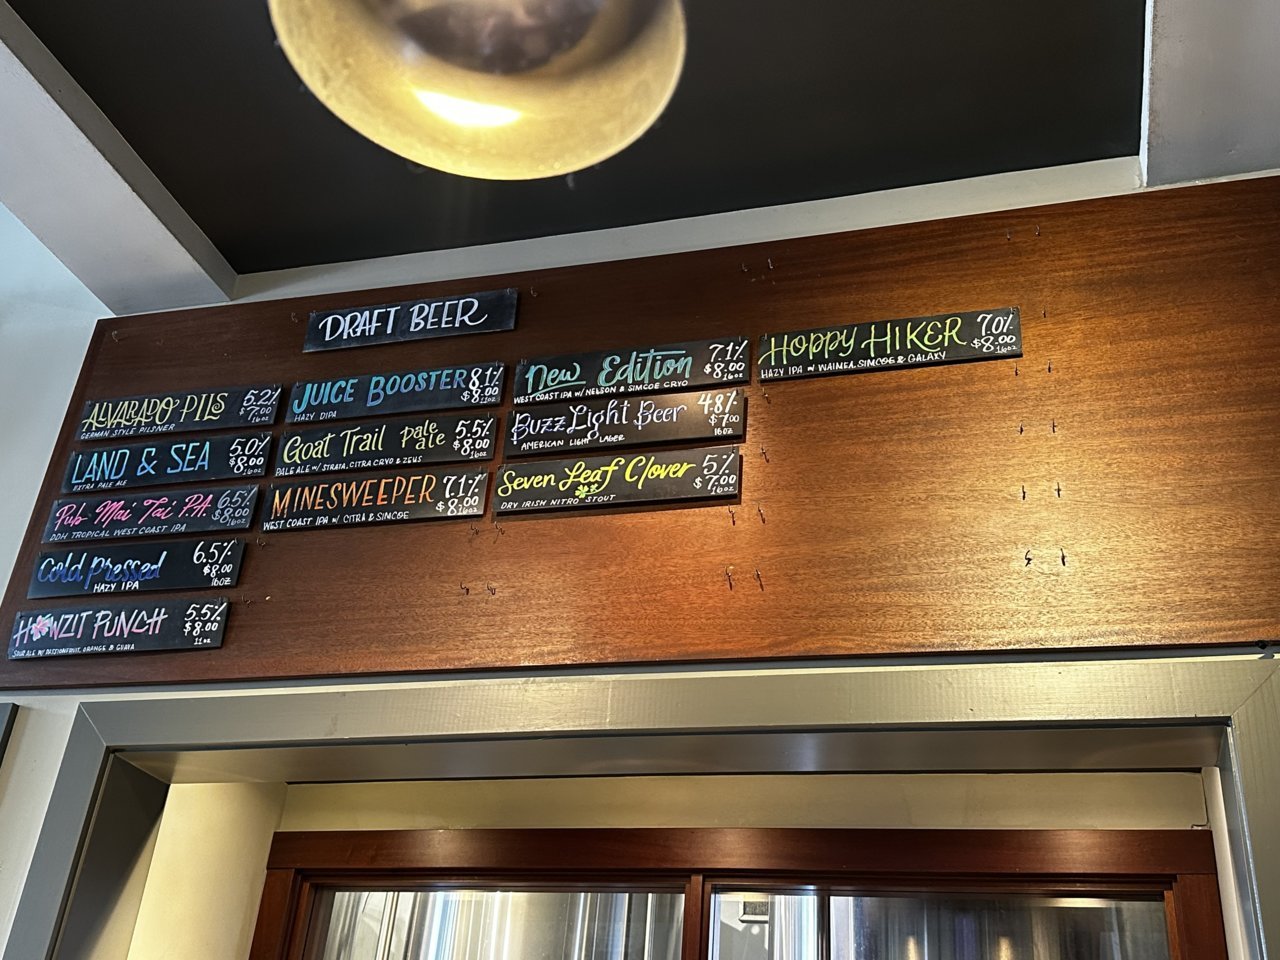 DRAFT BEER
ALVARADO PILS 5.2%
GERMAN STYLE PILSNER $7.00
16oz
LAND & SEA 5.0%
EXTRA PALE ALE $8.00
16oz
Pub Mai Tai PA 6.5%
DDH TROPICAL WEST COAST IPA $8.00
16oz
Cold Pressed 6.5%
HAZY IPA $8.00
16oz
HOWZIT PUNCH 5.5%
SOUR ALE W/ PASSIONFRUIT, ORANGE & GUAVA $8.00
11oz
JUICE BOOSTER 8.1%
HAZY DIPA $8.00
11oz
Goat Trail pale ale 5.5%
PALE ALE W/ STRATA, CITRA CRYO & ZEUS $8.00
16oz
MINESWEEPER 7.1%
WEST COAST IPA W/ CITRA & SIMCOE $8.00
16oz
New Edition 7.1%
WEST COAST IPA W/ NELSON & SIMCOE CRYO $8.00
16oz
Buzz Light Beer 4.8%
AMERICAN LIGHT LAGER $7.00
16oz
Seven Leaf Clover 5%
DRY IRISH NITRO STOUT $7.00
16oz
HOPPY HIKER 7.0%
HAZY IPA W/ WAIMEA, SIMCOE & GALAXY $8.00
16oz